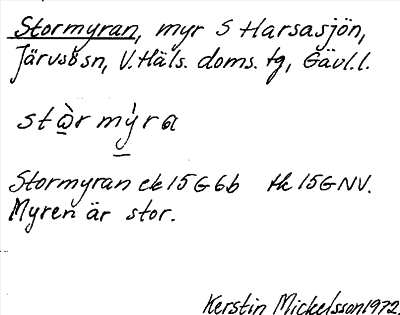 Stormyran, myr S Harsasjön,
Järvsö sn, V. Häls. doms. tg, Gävl. l.
stàr mỳra
Stormyran ek 15G6b tk 15GNV.
Myren är stor.
Kerstin Mickelsson 1972.